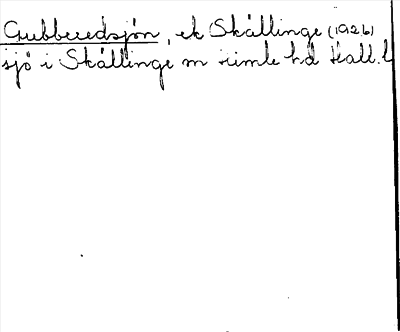 Gubberedsjön, ek Skällinge (1926)
sjö i Skällinge m Himle hd Hall. l